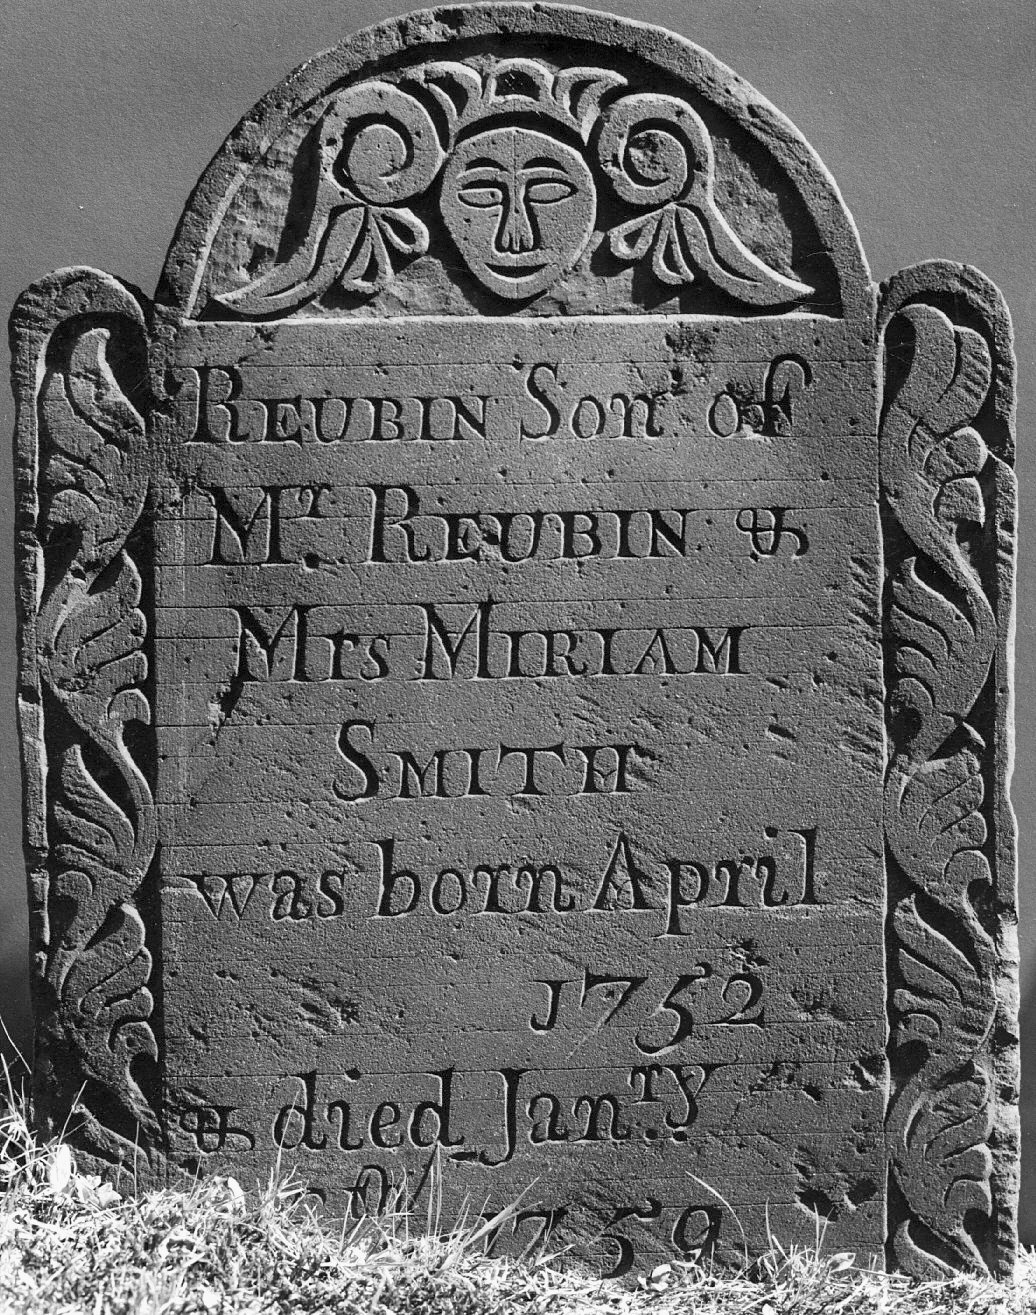 REUBIN Son of
Mr REUBIN &
Mrs MIRIAM
SMITH
was born April
1752
& died Janry
1759